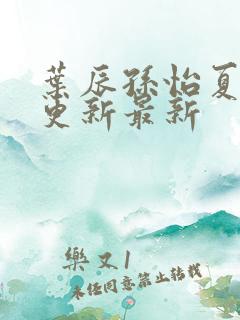 葉辰孫怡夏
更新最新
樂文1
未经同意禁止转载